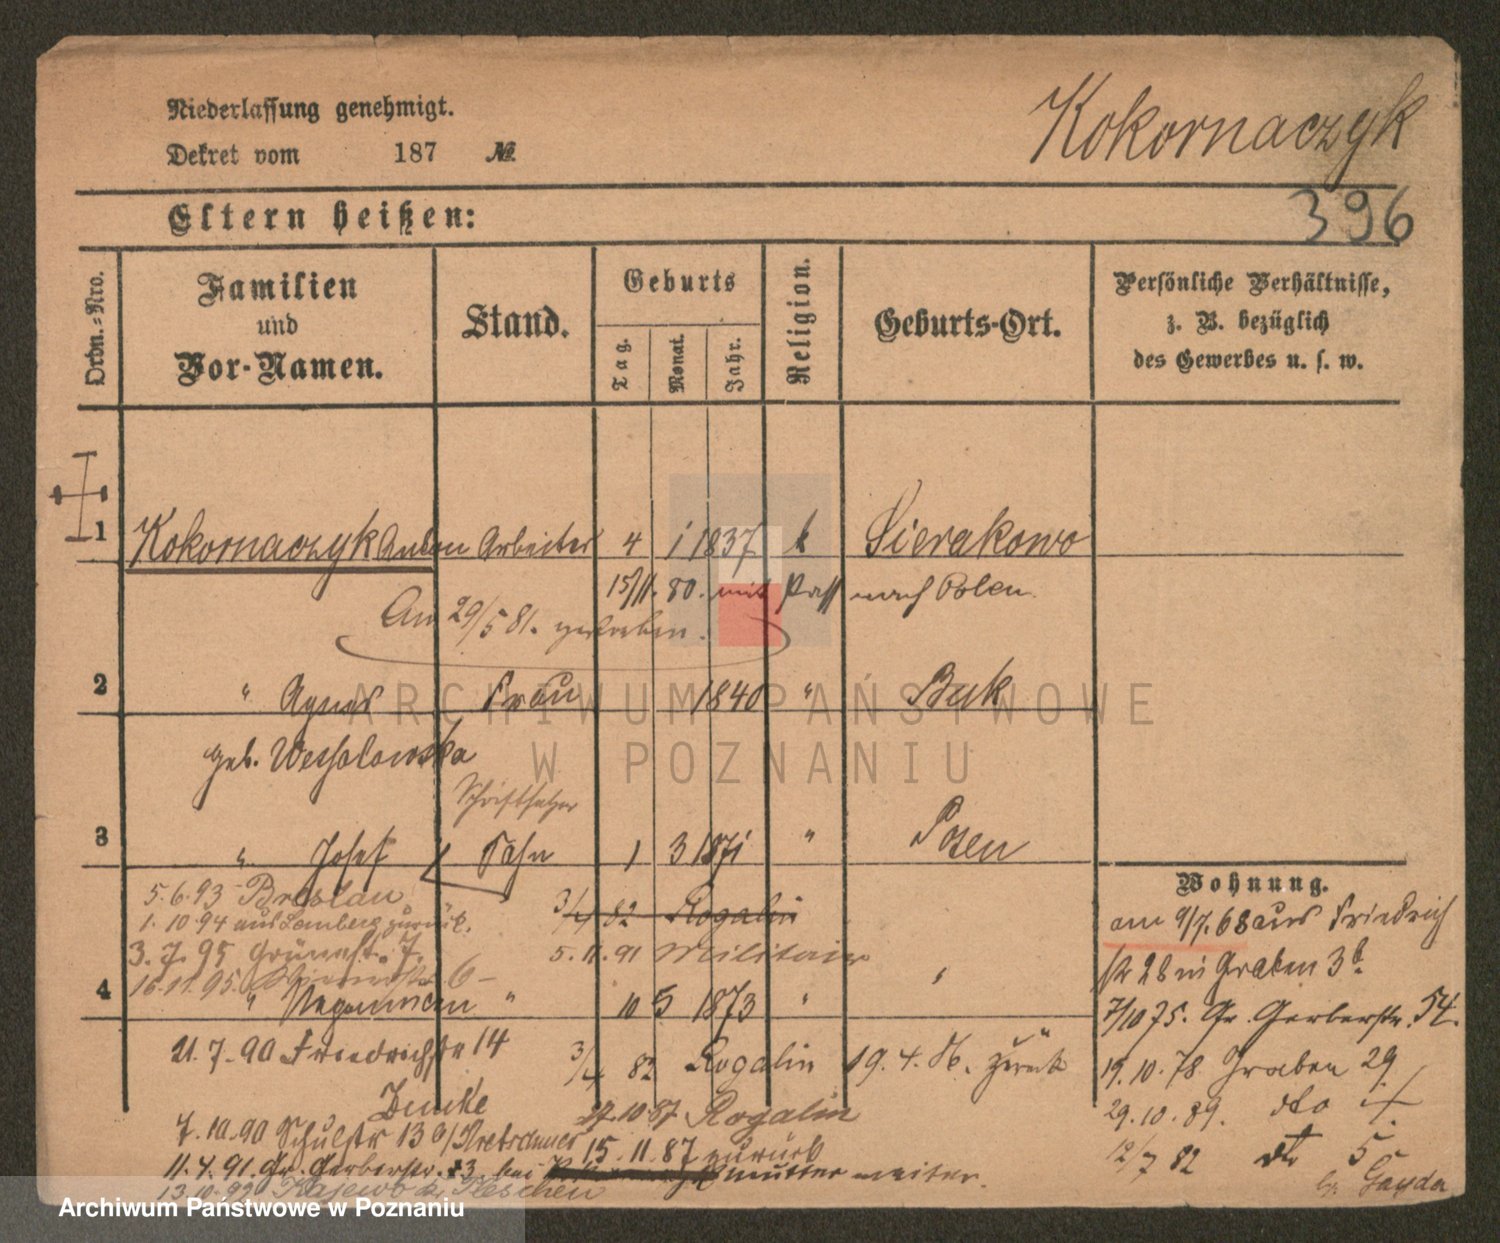 Niederlassung genehmigt.
Dekret vom 187 №
Kokornaczyk
396
Eltern heißen:
Ordn.-Nro.
Familien
und
Vor-Namen.
Stand.
Geburts
Tag.
Monat.
Jahr.
Religion.
Geburts-Ort.
Persönliche Verhältnisse,
z. B. bezüglich
des Gewerbes u. s. w.
1 Kokornaczyk Anton Arbeiter 4 1 1837 k Sierakowo
15/11. 80. mit Pass nach Polen.
Am 29/5 81. gestorben.
2 " Agnes Frau 1840 " Buk
geb. Wesholowska
Schriftsetzer
3 " Josef Sohn 1 3 1871 " Posen
Wohnung.
5.6.93 Breslau
3/4 82 Rogalin
am 9/7. 68 aus Friedrich
1.10.94 aus Lemberg zurück.
3.7.95 7.
5.11.91 Militair
str 28 n Graben 3b.
16.11.95. 6
4 " " 10 5 1873 "
7/10 75. Gr. Gerberstr. 54.
21.7.90 Friedrichstr 14
3/4 82 Rogalin 19.4. zurück
19.10.78 Graben 29
Demke
27.10.87 Rogalin
29.10.89. dto
7.10.90 Schulstr 13 b/Kretschmer
15.11.87 zurück
12/7 82 dto 5
11.4.91. Gr. Gerberstr. bei Mutter weiter.
by Gayda
13.10.92 Pleschen
ARCHIWUM PAŃSTWOWE
W POZNANIU
Archiwum Państwowe w Poznaniu